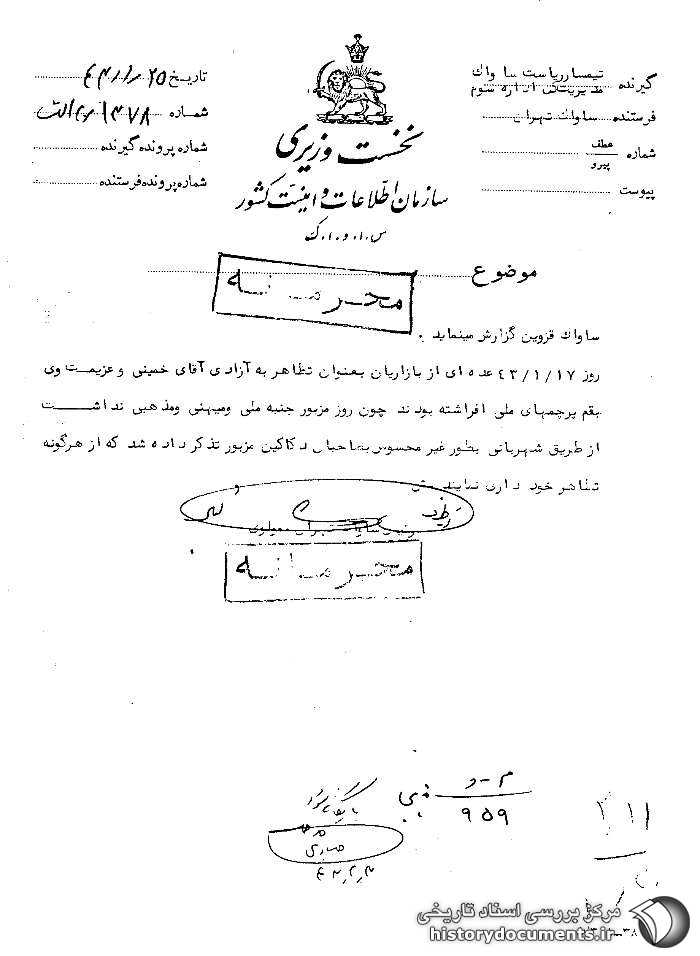 گیرنده تیمسار ریاست ساواك
مدیریت کل اداره سوم
فرستنده ساواك تهران
شماره عطف
پیرو
پیوست
نخست وزیری
سازمان اطلاعات و امنیت کشور
س.ا.و.ا.ك
تاریخ ۴۳/۱/۲۵
شماره
شماره پرونده گیرنده
شماره پرونده فرستنده
موضوع
محرمانه
ساواك قزوین گزارش مینماید .
روز ۴۳/۱/۱۷ عده ای از بازاریان بعنوان تظاهر به آزادی آقای خمینی و عزیمت وی
بقم پرچمهای ملی افراشته بودند چون روز مزبور جنبه ملی ومیهنی ومذهبی نداشت
از طریق شهربانی بطور غیر محسوس بصاحبان دکاکین مزبور تذکر داده شد که از هرگونه
تظاهر خود داری نمایند
محرمانه
م - و
۹۵۹
۲۱۱
مرکز بررسی اسناد تاریخی
historydocuments.ir